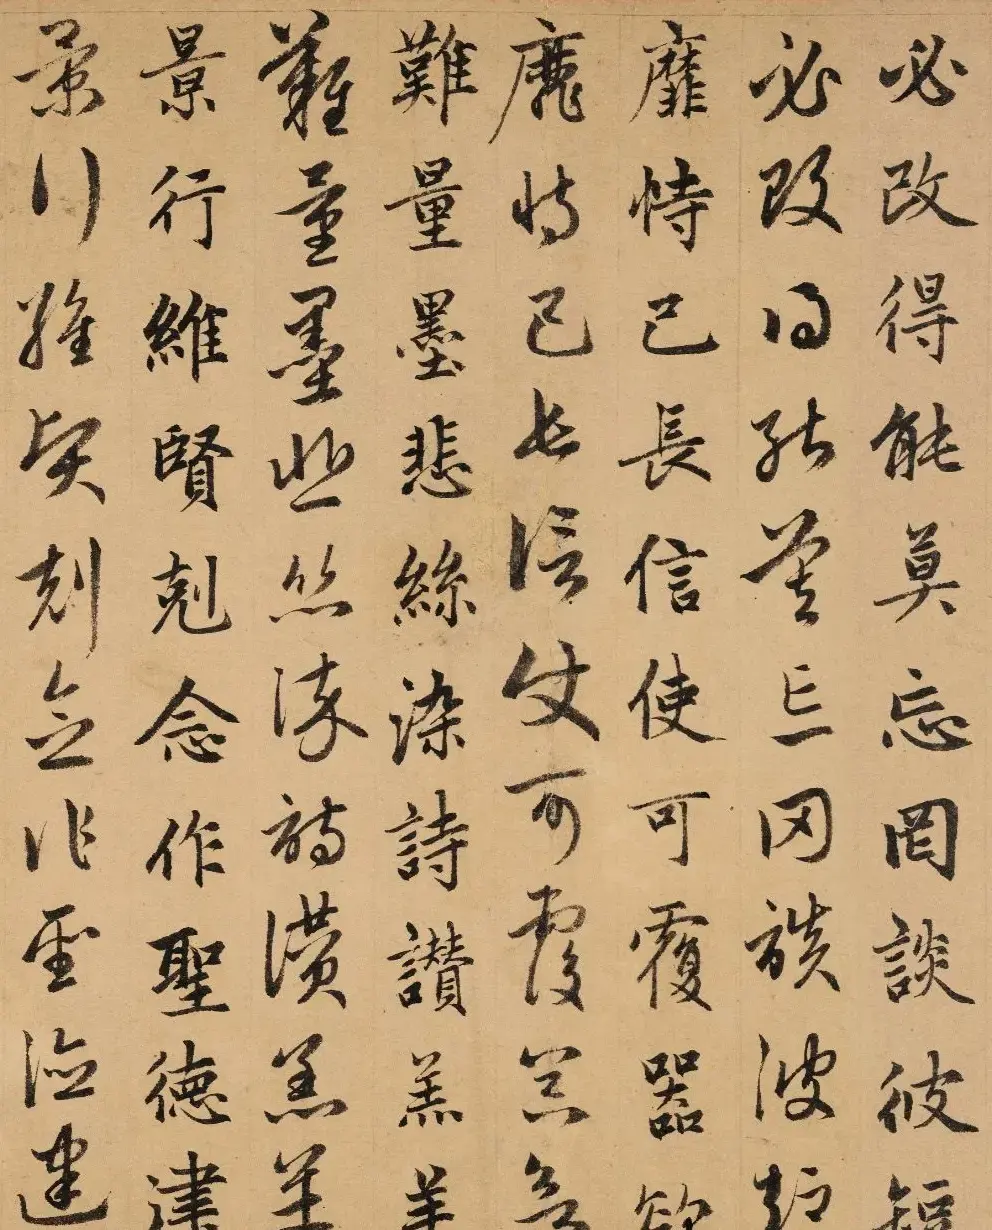 必改得能莫忘罔談彼短
必改得能莫忘罔談彼短
靡恃己長信使可覆器欲
靡恃己長信使可覆器欲
難量墨悲絲染詩讚羔羊
難量墨悲絲染詩讚羔羊
景行維賢剋念作聖德建
景行維賢剋念作聖德建